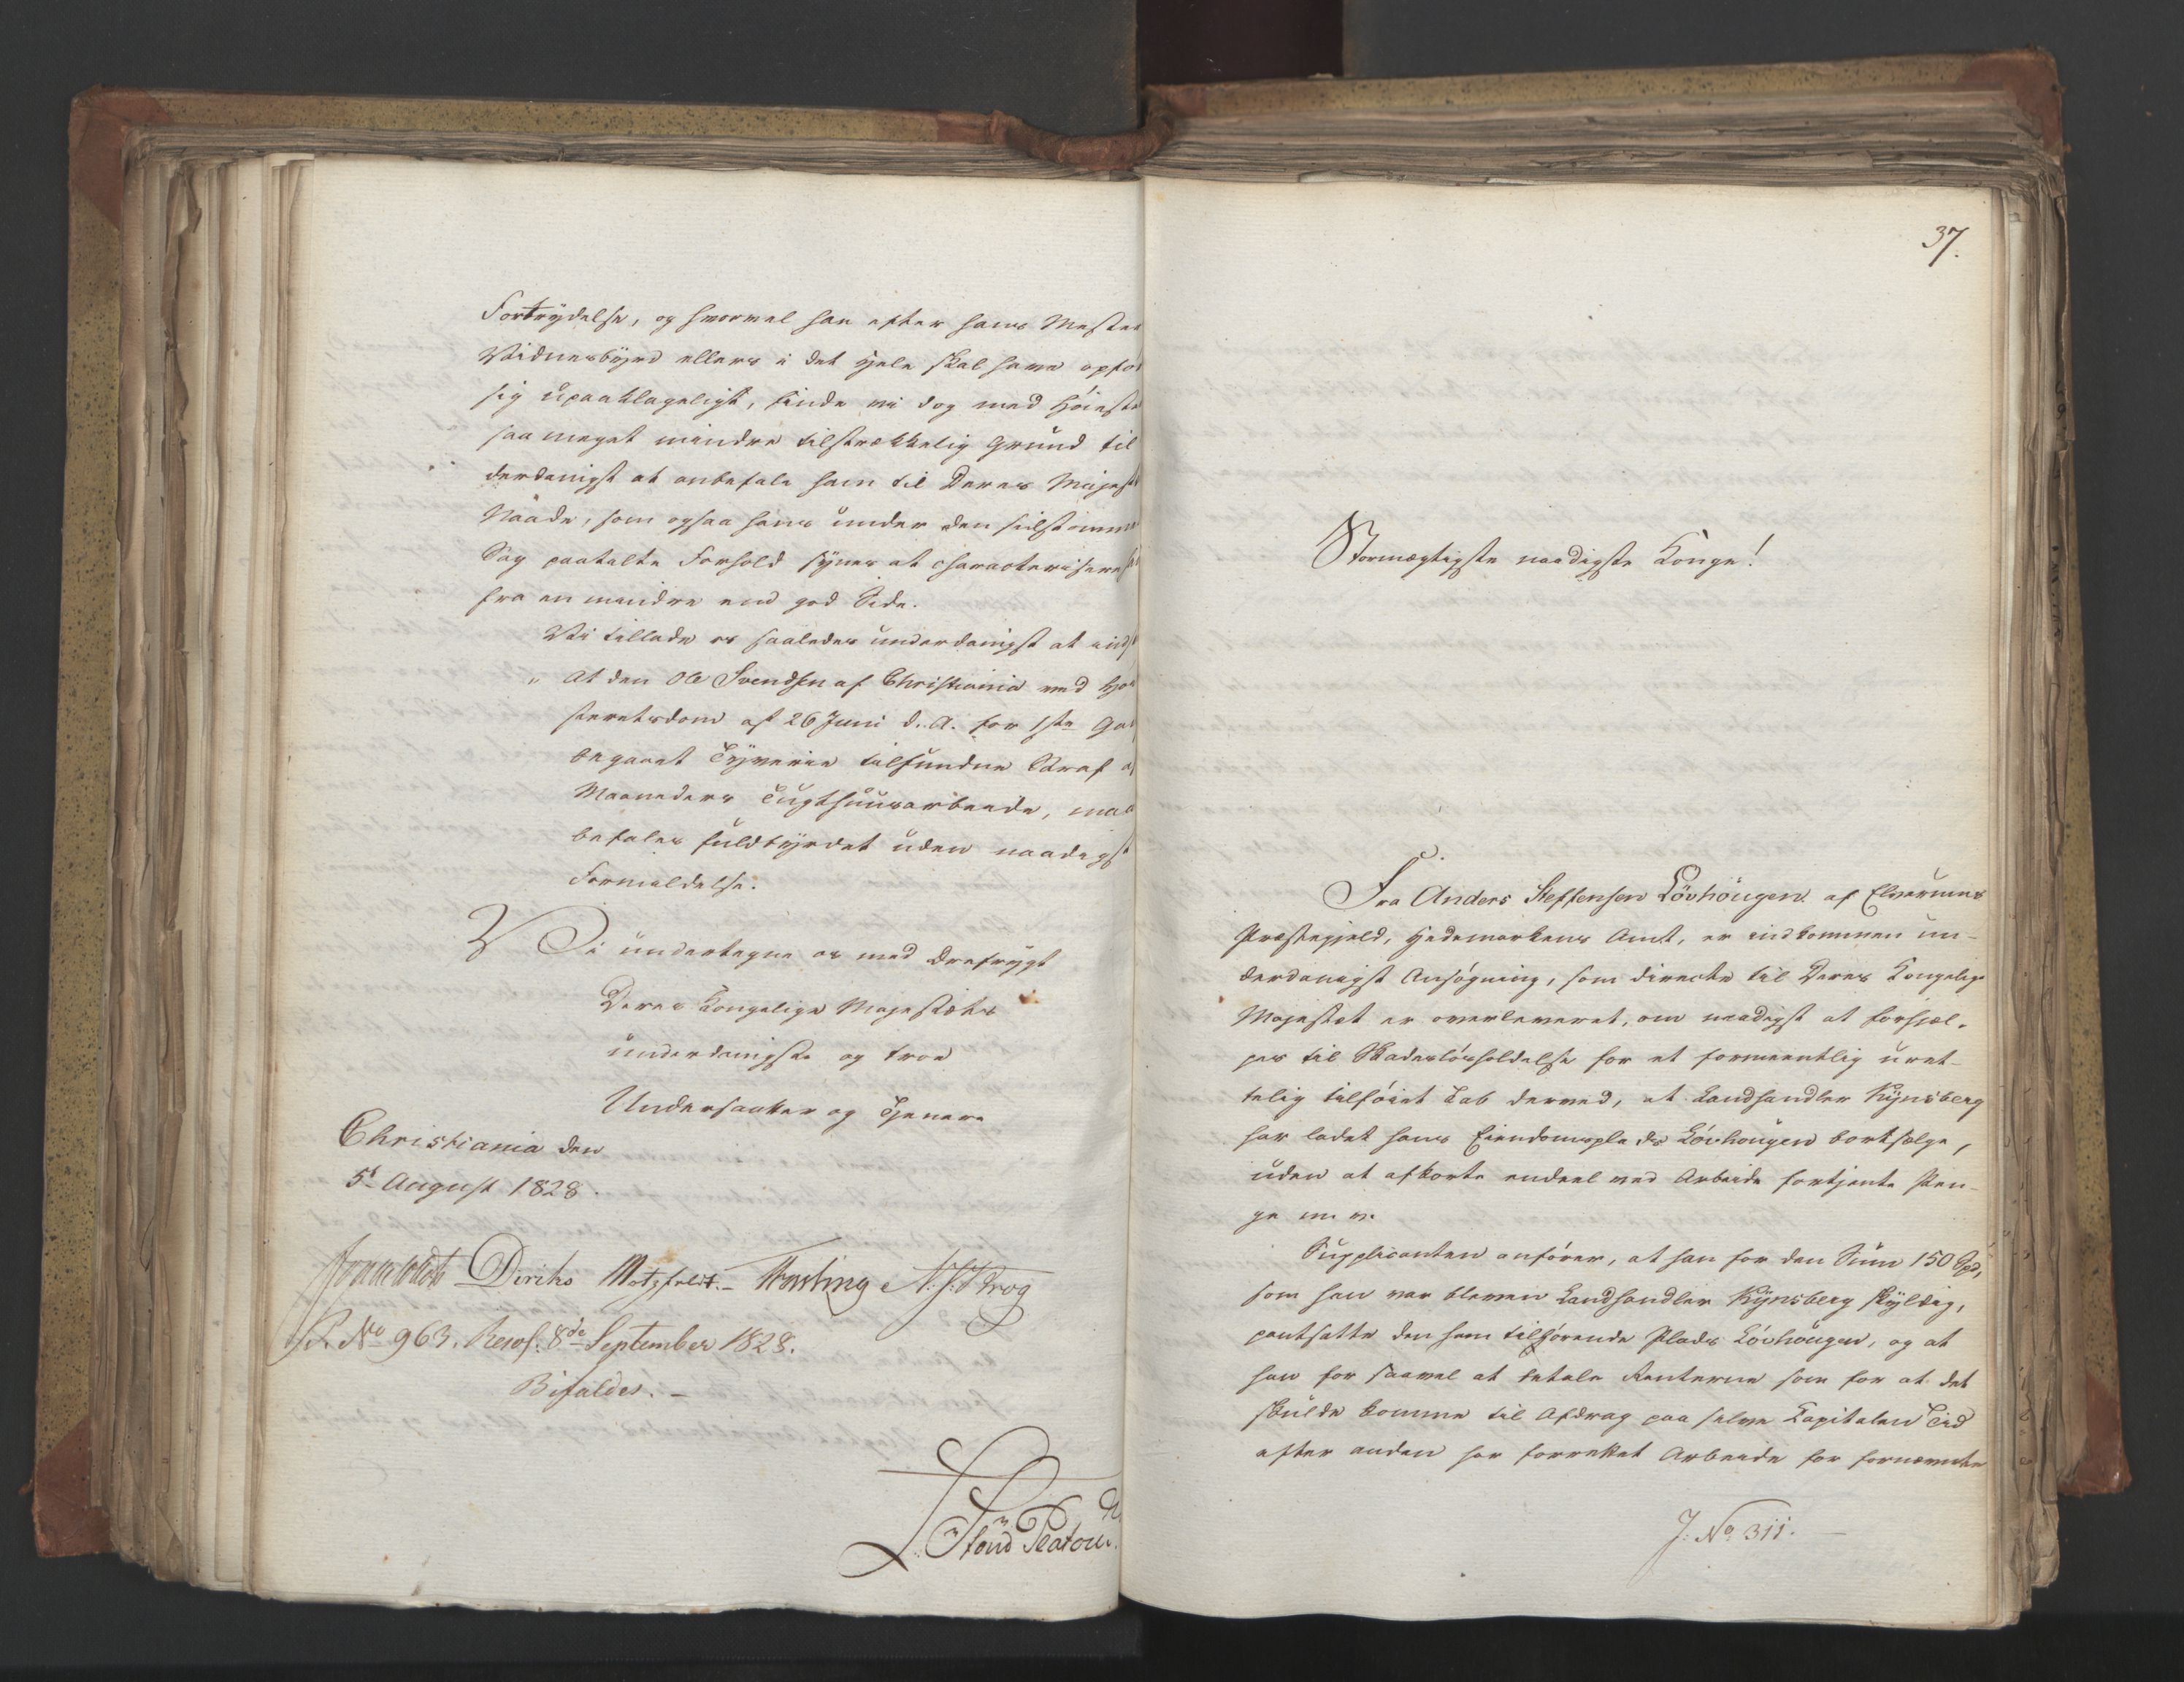 Fortrydelse, og hvorvel han efter hans Mesters
Vidnesbyrd ellers i det Hele skal have opfø
sig upaaklageligt, finde vi dog med Høieste
saa meget mindre tilstrækkelig Grund til
derdanigst at anbefale ham til Deres Majest
Naade, som ogsaa hans under den
Sag paatalte Forhold synes at characterisere
fra en mindre end god Side.
Vi tillade os saaledes underdanigst at inds
" At den Ole Svendsen af Christiania ved Høi
steretsdom af 26 Juni d. A. for 1ste Ga
begaaet Tyverie tilfundne Straf a
Maaneders Tugthuusarbeide, maa
befales fuldbyrdet uden naadigst
Formildelse.
Vi undertegne os med Ærefrygt
Deres Kongelige Majestæts
underdanigste og troe
Undersaatter og Tjenere
Christiania den
5t August 1828.
Diriks Motzfeldt.- Fasting N: J: Krog
S.R. No 963. Resol: 8de September 1828.
Bifaldes. -
37.
Stormægtigste naadigste Konge!
Fra Anders Steffensen Løvhougen af Elverums
Præstegjeld, Hedemarkens Amt, er indkommen un-
derdanigst Ansøgning, som directe til Deres Kongelige
Majestæt er overleveret, om naadigst at forhjæl-
pes til Skadesløsholdelse for et formeentlig uret-
telig tilføiet Tab derved, at Landhandler Kynsberg
har ladet hans Eiendomsplads Løvhougen bortsælge,
uden at afkorte endeel ved Arbeide fortjente Pen-
ge m. v.
Supplicanten anfører, at han for den Sum 150 Spd,
som han var bleven Landhandler Kynsberg skyldig,
pantsatte den ham tilhørende Plads Løvhougen, og at
han for saavel at betale Renterne som for at det
skulde komme til Afdrag paa selve Kapitalen Tid
efter anden har forrettet Arbeide for fornævnte
J: No 311. -